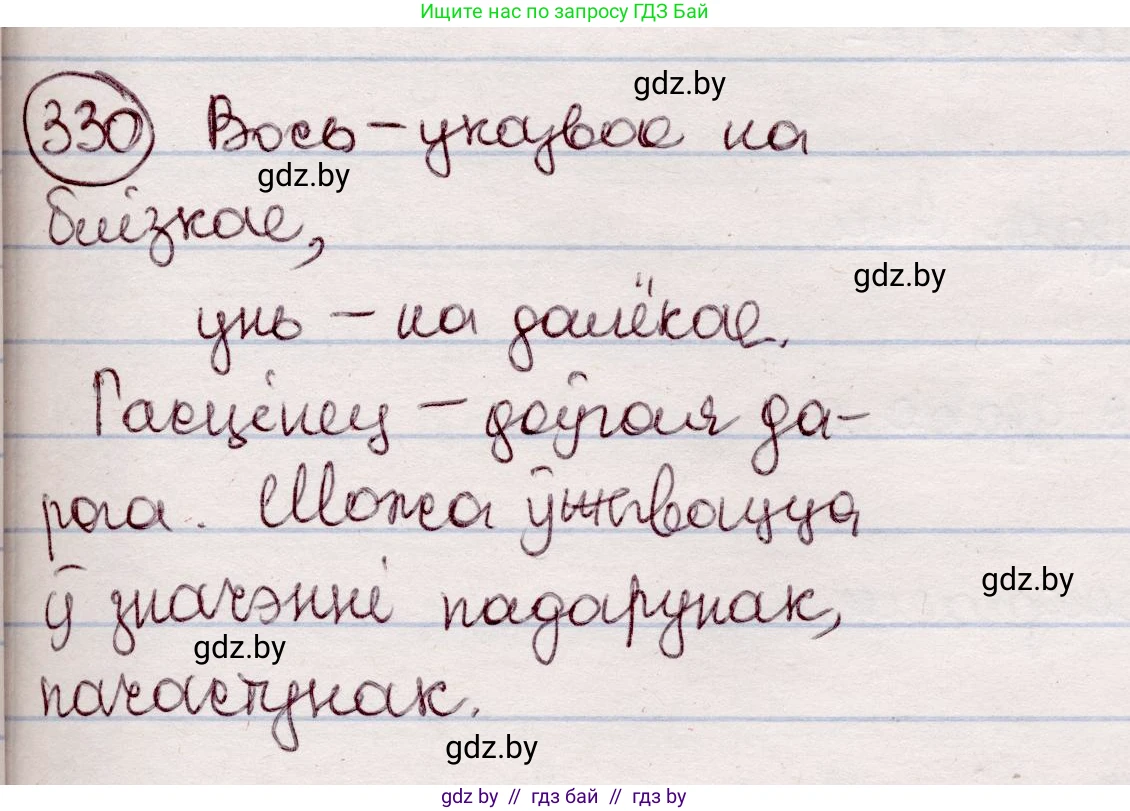 Ищите нас по запросу ГДЗ Бай
gdz.by
330 Вось – указвае на
gdz.by
блізкае,
gdz.by
унь – на далёкае.
Гасцінец – доўгая да-
рога. Можа ўжывацца
gdz.by
ў значэнні падарунак,
gdz.by
пачастунак.
gdz.by
gdz by // гдз бай // гдз by